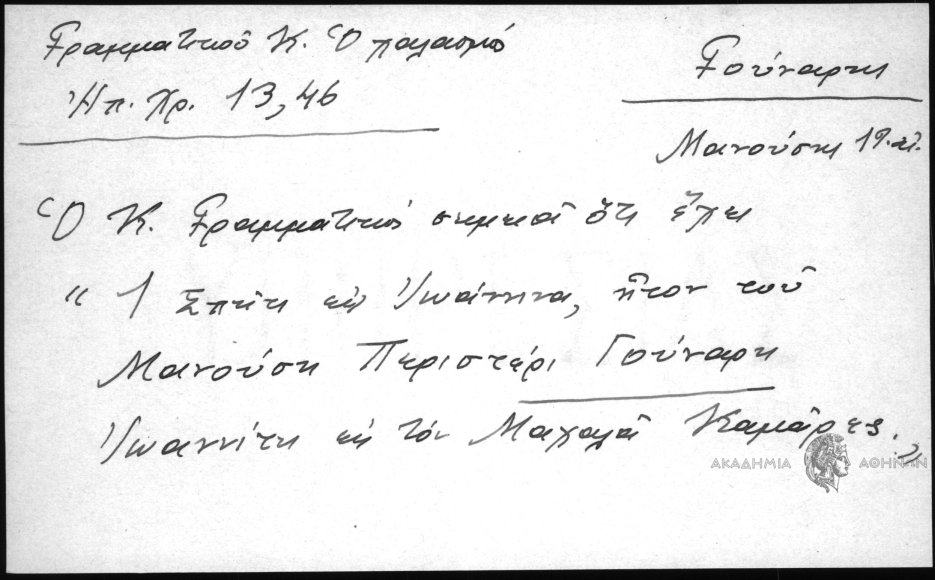 Γραμματικοῦ Κ. Ὁ χαλασμός
Ἠπ. Χρ. 13, 46
Γούναρης
Μανούσης 19. αἰ.
Ὁ Κ. Γραμματικός σημειοῖ ὅτι
" 1 Σπίτι εἰς Ἰωάννινα, ἦτον τοῦ
Μανούση Περιστέρι Γούναρη
Ἰωαννίτη εἰς τόν Μαχαλᾶ Καμάρες."
ΑΚΑΔΗΜΙΑ ΑΘΗΝΩΝ